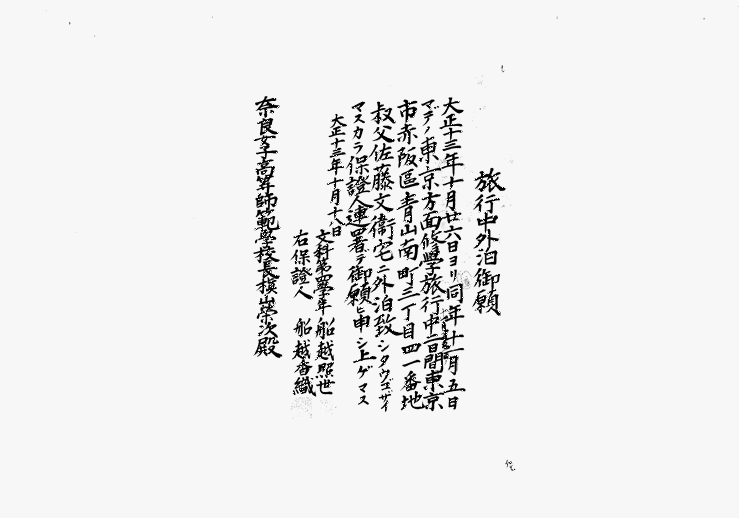 旅行中外泊御願
大正十三年十月廿六日ヨリ同年十一月五日
マデノ東京方面修學旅行中二日間東京
市赤阪區青山南町三丁目四一番地
叔父佐藤文衞宅ニ外泊致シタウゴザイ
マスカラ保證人連署ヲ以テ御願ヒ申シ上ゲマス
大正十三年十月十八日
文科第四學年 船越照世
右保證人 船越香織
奈良女子高等師範學校長槇山榮次殿